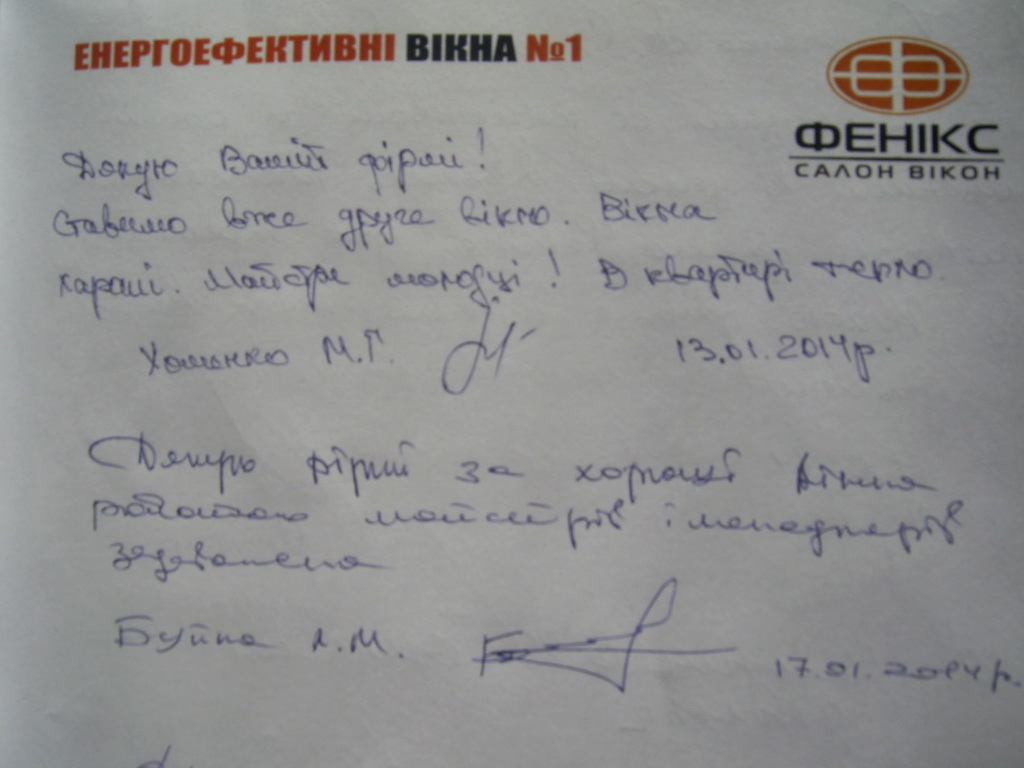 ЕНЕРГОЕФЕКТИВНІ ВІКНА №1
ФЕНІКС
САЛОН ВІКОН
Дякую Вашій фірмі!
Ставимо вже друге вікно. Вікна
хараші. Майстри молодці! В квартирі тепло.
Хоменко М.Г. 13.01.2014р.
Дякую фірмі за хороші вікна
роботою майстрів і менеджерів
задоволена
Буйна Л.М. 17.01.2014р.